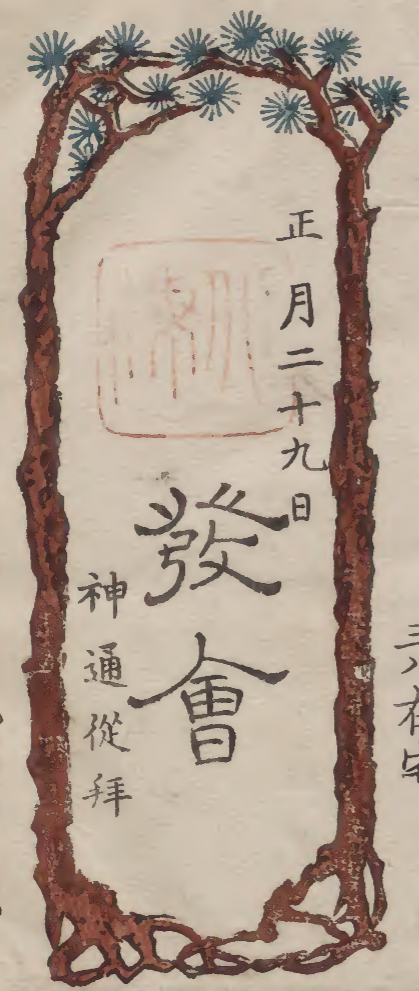 正月二十九日
發會
神通從拜